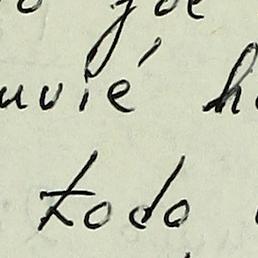 que
uvié h
todo